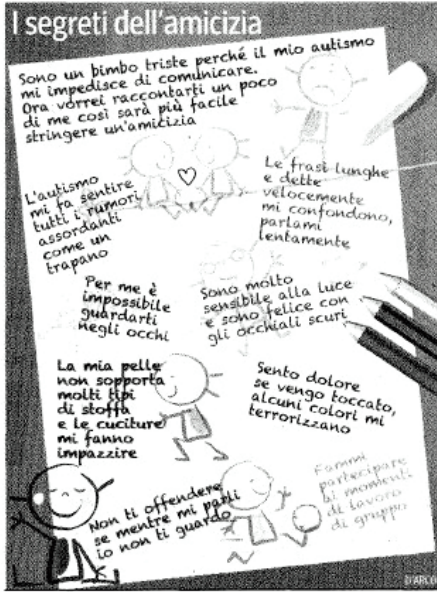 I segreti dell'amicizia
Sono un bimbo triste perché il mio autismo
mi impedisce di comunicare.
Ora vorrei raccontarti un poco
di me così sarà più facile
stringere un'amicizia
L'autismo
mi fa sentire
tutti i rumori
assordanti
come un
trapano
Le frasi lunghe
e dette
velocemente
mi confondono,
parlami
lentamente
Per me è
impossibile
guardarti
negli occhi
Sono molto
sensibile alla luce
e sono felice con
gli occhiali scuri
La mia pelle
non sopporta
molti tipi
di stoffa
e le cuciture
mi fanno
impazzire
Sento dolore
se vengo toccato,
alcuni colori mi
terrorizzano
Non ti offendere
se mentre mi parli
io non ti guardo
Fammi
partecipare
ai momenti
di lavoro
di gruppo
D'ARCO